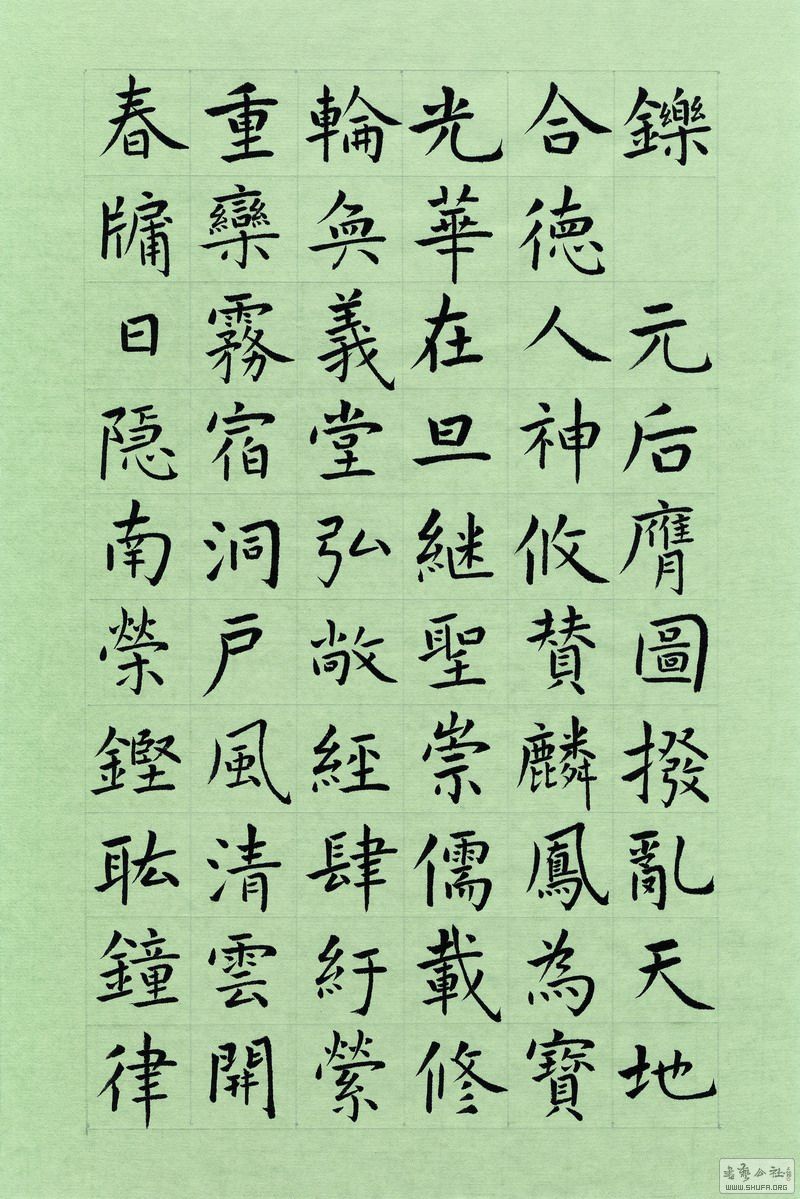 鑠 元后膺圖撥亂天地
合徳人神攸賛麟鳳為寶
光華在旦継聖崇儒載修
輪奐義堂弘敞經肆紆縈
重欒霧宿洞戶風清雲開
春牖日隠南榮鏗耾鐘律
書藝公社
WWW.SHUFA.ORG